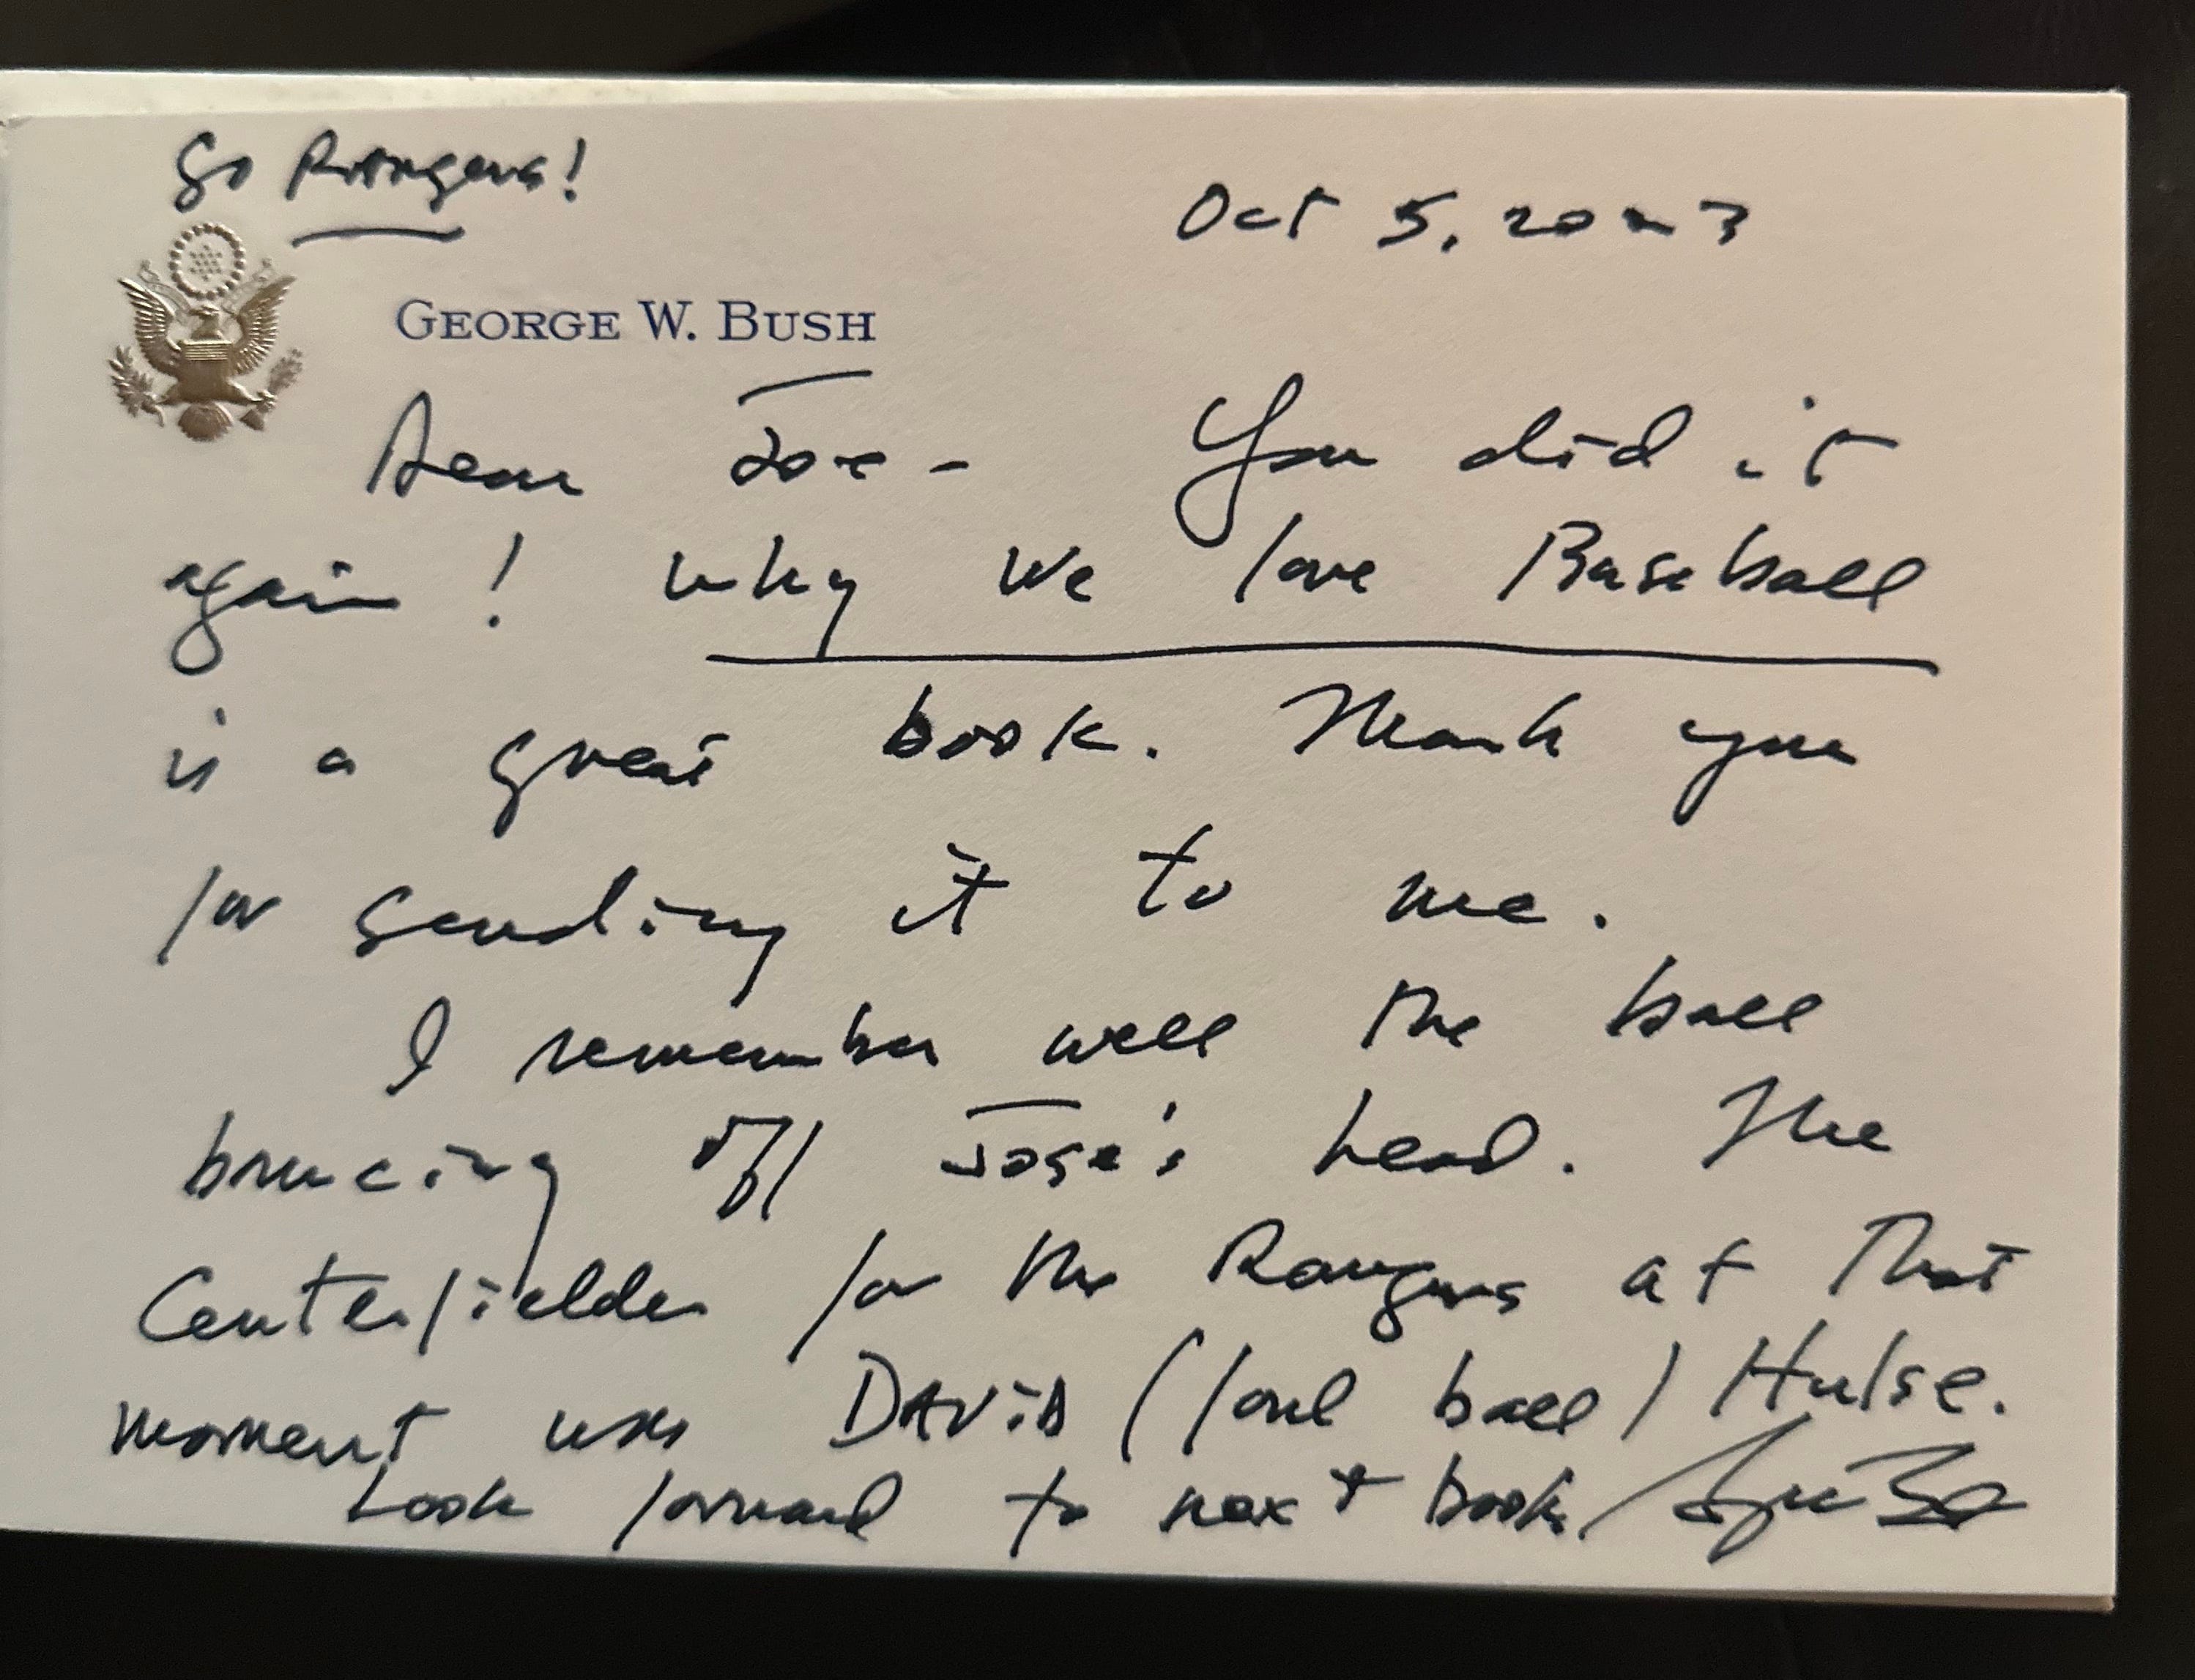 Go Rangers!
Oct 5, 2023
GEORGE W. BUSH
Dear Joe - You did it
again! Why We love Baseball
is a great book. Thank you
for sending it to me.
I remember well the ball
bouncing off Jose's head. The
Centerfielder for the Rangers at that
moment was DAViD (foul ball) Hulse.
Look forward to next book.